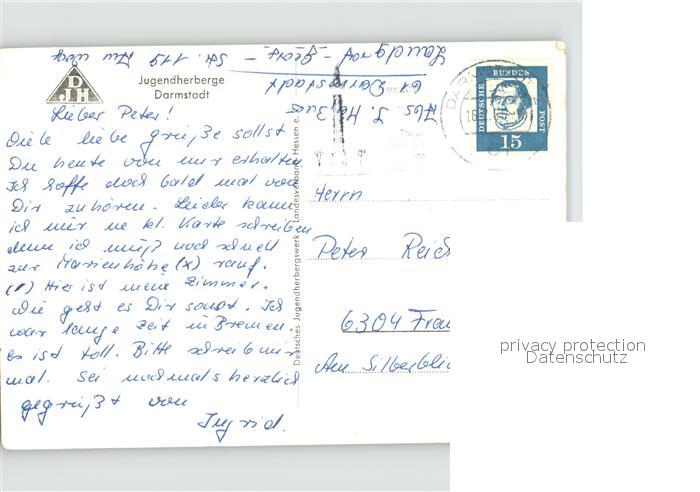 DJH
Jugendherberge
Darmstadt
Lieber Peter!
Viele liebe grüße sollst
Du heute von mir erhalten
Ich hoffe doch bald mal von
Dir zu hören. Leider kann
ich nur ne kl. Karte schreiben
denn ich muß noch schnell
zur Marienhöhe (x) rauf.
(1) Hier ist meine Zimmer.
Wie geht es Dir sonst. Ich
war lange Zeit in Bremen.
es ist toll. Bitte schreib mir
mal. Sei nochmals herzlich
gegrüßt von
Ingrid.
Abs. I.
61 Darmstadt
Landgraf-Georg-Str. 119
Deutsches Jugendherbergswerk Landesverband Hessen e.
DEUTSCHE BUNDES POST
15
Herrn
Peter Reich
6304 Frau
Am Silberblic
privacy protection
Datenschutz